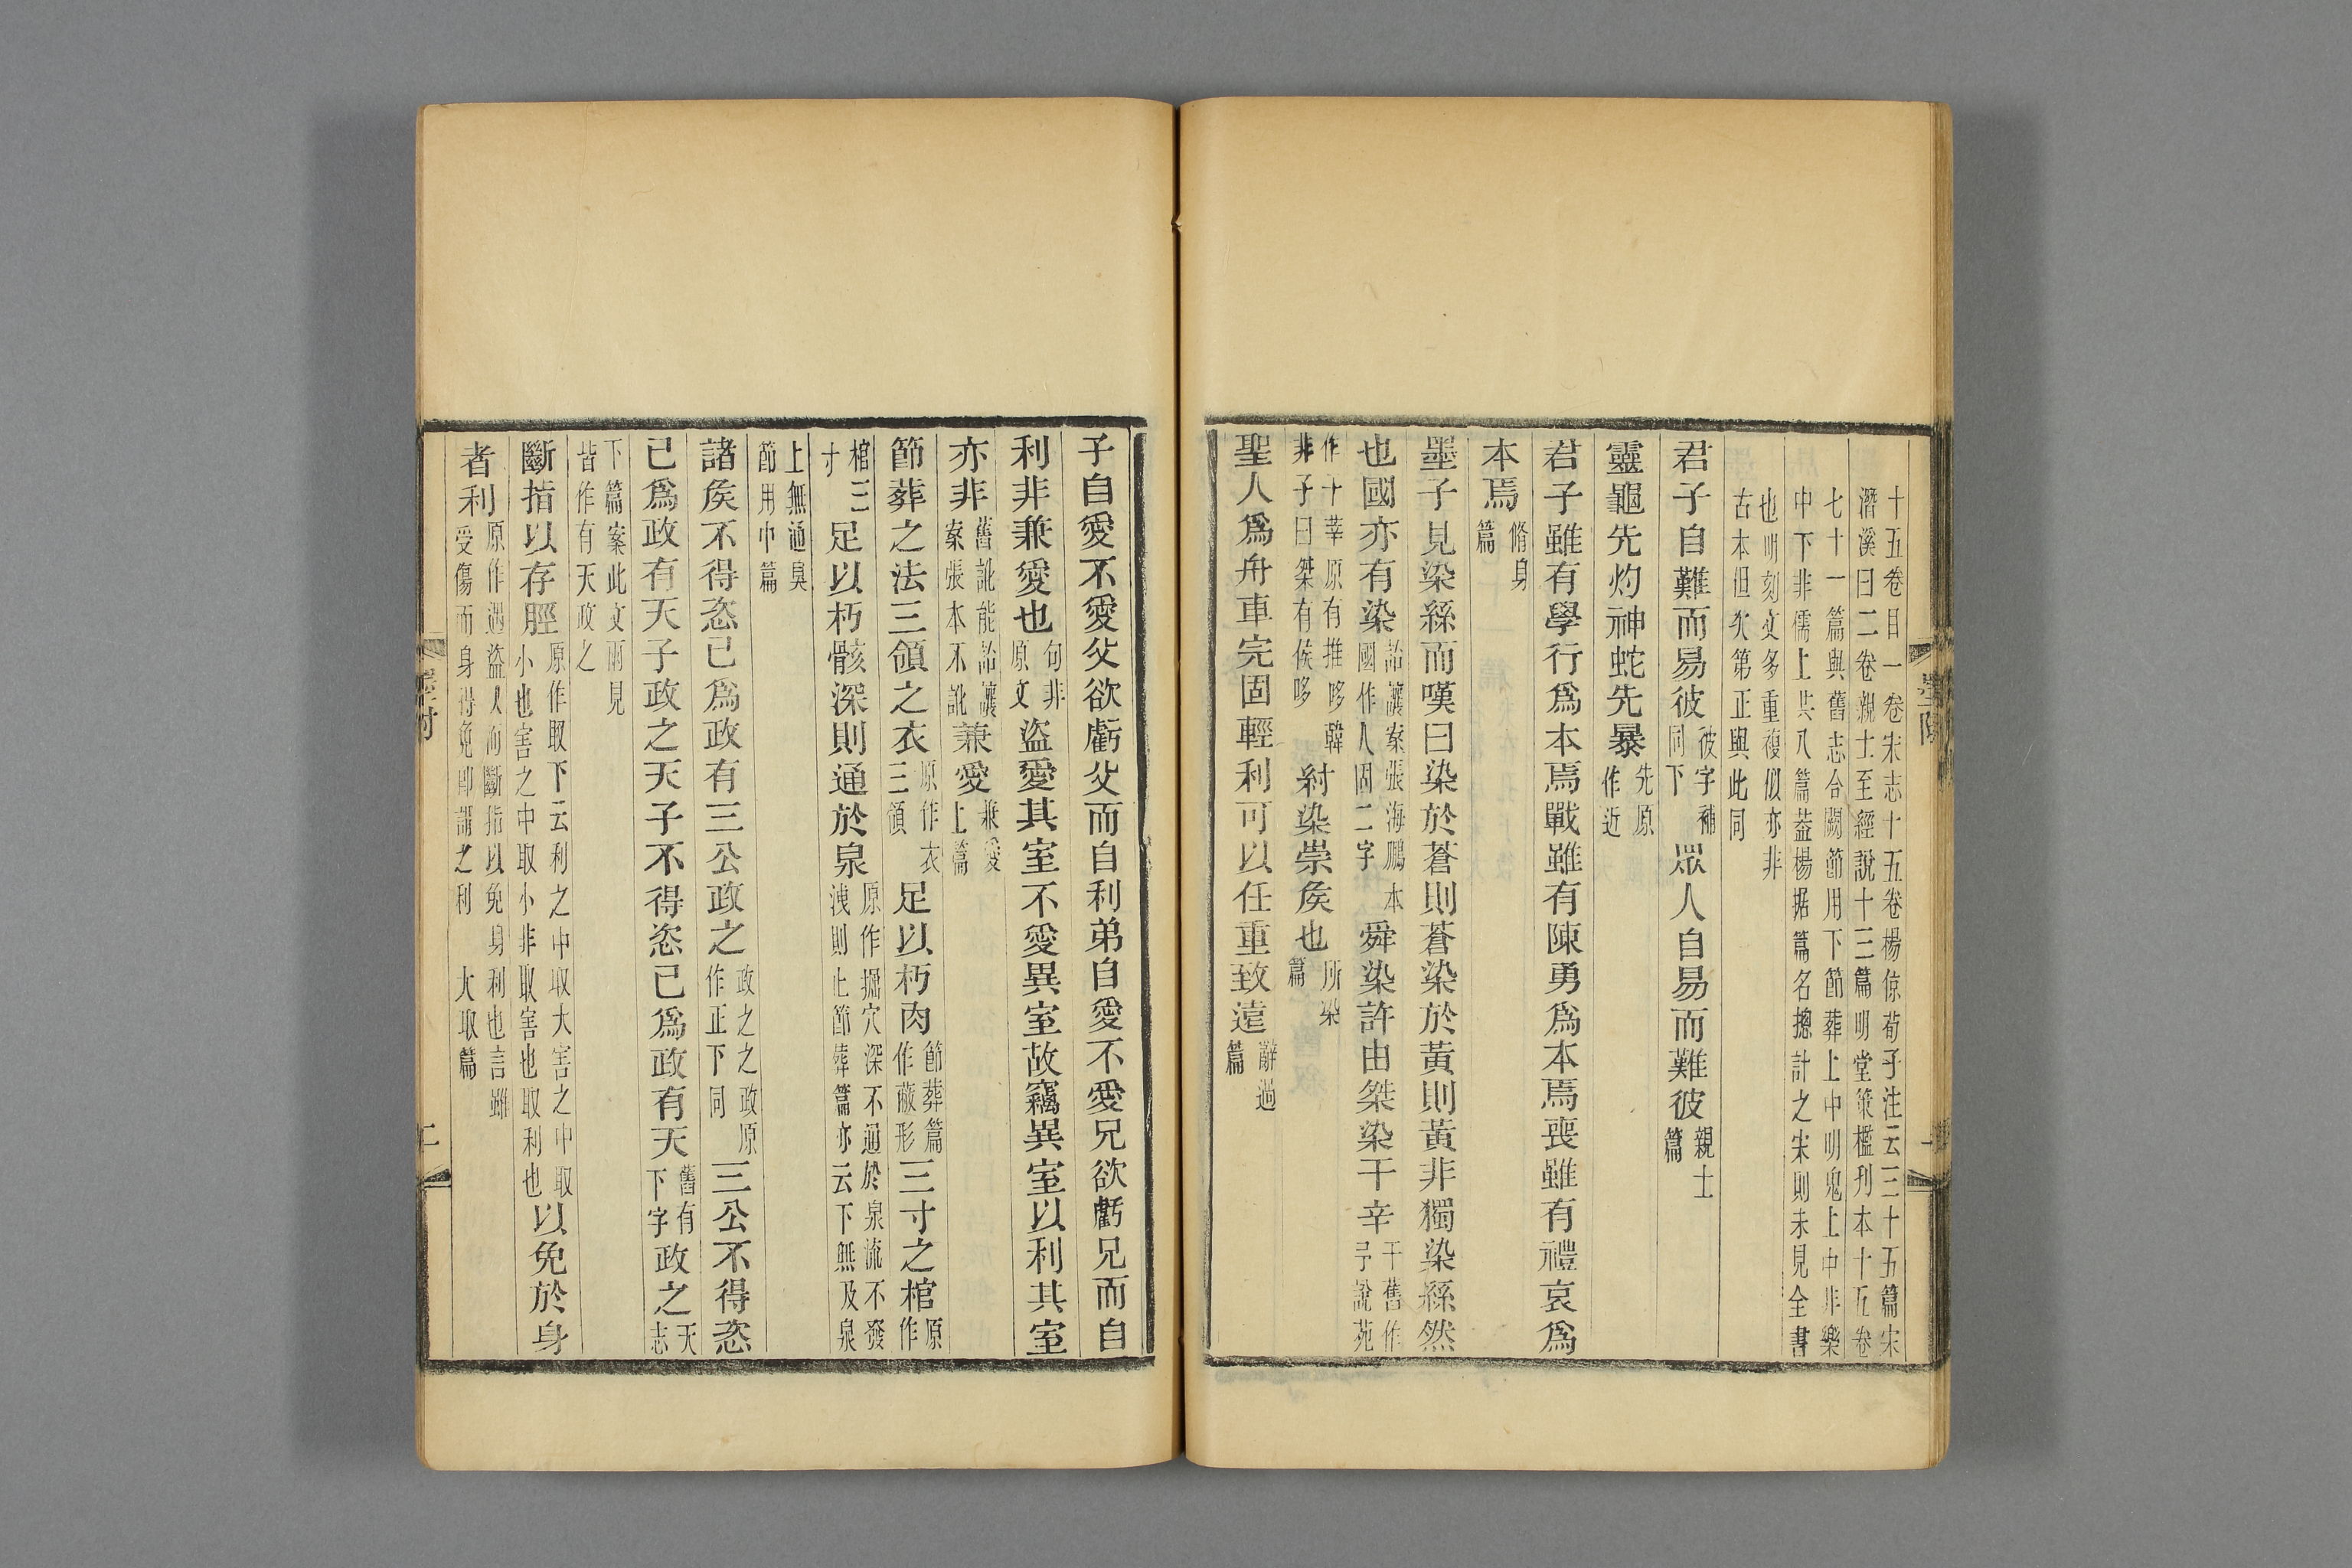 十五卷目一卷宋志十五卷楊倞荀子注云三十五篇宋
潛溪曰二卷親士至經說十三篇明堂策檻刋本十五卷
七十一篇與舊志合闕節用下節葬上中明鬼上中非樂
中下非儒上共八篇葢楊据篇名摠計之宋則未見全書
也明刻文多重複似亦非
古本但次第正與此同
君子自難而易彼彼字補同下眾人自易而難彼親士篇
靈龜先灼神蛇先暴先原作近
君子雖有學行爲本焉戰雖有陳勇爲本焉喪雖有禮哀爲
本焉脩身篇
墨子見染絲而嘆曰染於蒼則蒼染於黃則黃非獨染絲然
也國亦有染詒讓案張海鵬本國作人固二字舜染許由桀染干辛干舊作予說苑
作干莘原有推哆韓非子曰桀有侯哆紂染崇矦也所染篇
聖人爲舟車完固輕利可以任重致遠辭過篇
子自愛不愛父欲虧父而自利弟自愛不愛兄欲虧兄而自
利非兼愛也句非原文盜愛其室不愛異室故竊異室以利其室
亦非舊訛能詒讓案張本不訛兼愛兼愛上篇
節葬之法三領之衣原作衣三領足以朽肉節葬篇作蔽形三寸之棺原作
棺三寸足以朽骸深則通於泉原作掘穴深不通於泉流不發洩則止節葬篇亦云下無及泉
上無通臭節用中篇
諸矦不得恣己爲政有三公政之政之之政原作正下同三公不得恣
己爲政有天子政之天子不得恣己爲政有天舊有下字政之天志
下篇案此文兩見皆作有天政之
斷指以存脛原作取下云利之中取大害之中取小也害之中取小非取害也取利也以免於身
者利原作遇盜人而斷指以免身利也言雖受傷而身得免卽謂之利大取篇